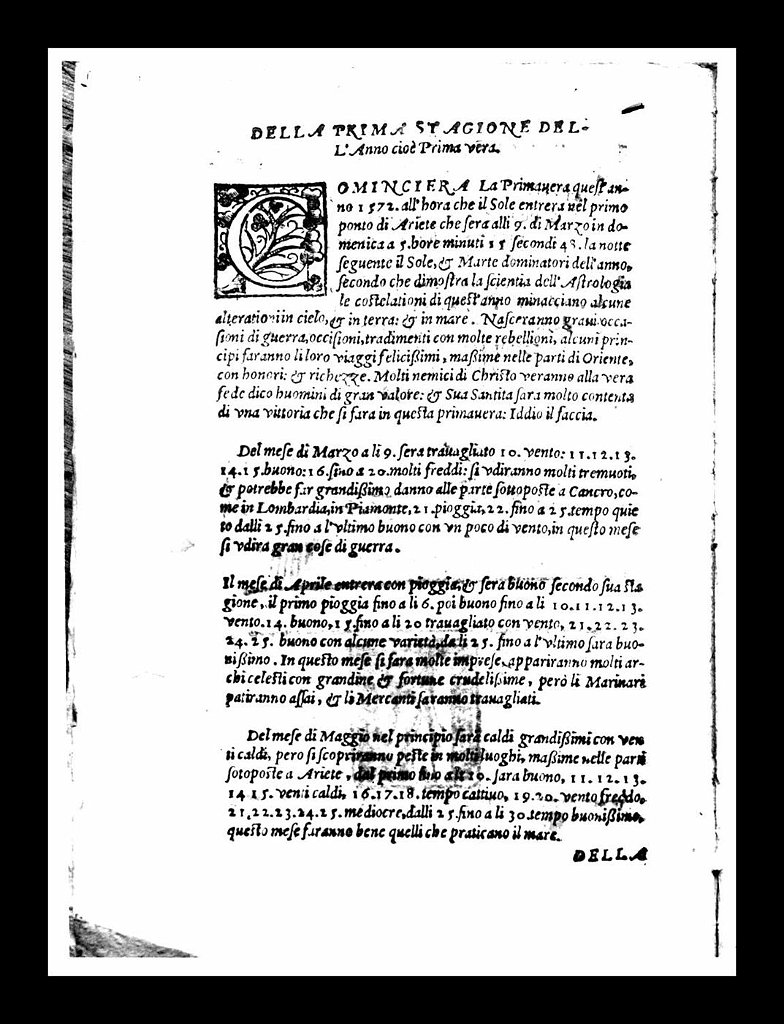 DELLA PRIMA STAGIONE DEL-
L'Anno cioè Prima vera.
COMINCIERA La Primauera quest'an-
no 1572. all'hora che il Sole entrera nel primo
ponto di Ariete che sera alli 9. di Marzo in do-
menica a 5. hore minuti 15 secondi 48. la notte
seguente il Sole, & Marte dominatori dell'anno,
secondo che dimostra la scientia dell'Astrologia
le costelationi di quest'anno minacciano alcune
alterationi in cielo, & in terra: & in mare. Nasceranno graui occa-
sioni di guerra, occisioni, tradimenti con molte rebellioni, alcuni prin-
cipi faranno li loro viaggi felicißimi, maßime nelle parti di Oriente,
con honori: & richezze. Molti nemici di Christo veranno alla vera
fede dico huomini di gran valore: & Sua Santita sara molto contenta
di vna vittoria che si fara in questa primauera: Iddio il faccia.
Del mese di Marzo a li 9. sera trauagliato 10. vento: 11.12.13.
14.15. buono: 16. fino a 20. molti freddi: si vdiranno molti tremuoti,
& potrebbe far grandißimo danno alle parte sottoposte a Cancro, co-
me in Lombardia, in Piamonte, 21. pioggia, 22. fino a 25. tempo quie
to dalli 25. fino a l'vltimo buono con vn poco di vento, in questo mese
si vdira gran cose di guerra.
Il mese di Aprile entrera con pioggia, & sera buono secondo sua sta
gione, il primo pioggia fino a li 6. poi buono fino a li 10.11.12.13.
vento. 14. buono, 15. fino a li 20 trauagliato con vento, 21.22.23.
24.25. buono con alcune varietà, da li 25. fino a l'vltimo sara buo-
nißimo. In questo mese si fara molte imprese, appariranno molti ar-
chi celesti con grandine & fortune crudelißime, però li Marinari
patiranno assai, & li Mercanti saranno trauagliati.
Del mese di Maggio nel principio sarà caldi grandißimi con ven
ti caldi, pero si scopriranno peste in molti luoghi, maßime nelle parti
sotoposte a Ariete, dal primo fino a li 10. sara buono, 11.12.13.
14 15. venti caldi, 16.17.18. tempo cattiuo, 19.20. vento freddo,
21.22.23.24.25. mediocre, dalli 25. fino a li 30. tempo buonißimo,
questo mese faranno bene quelli che praticano il mare.
DELLA